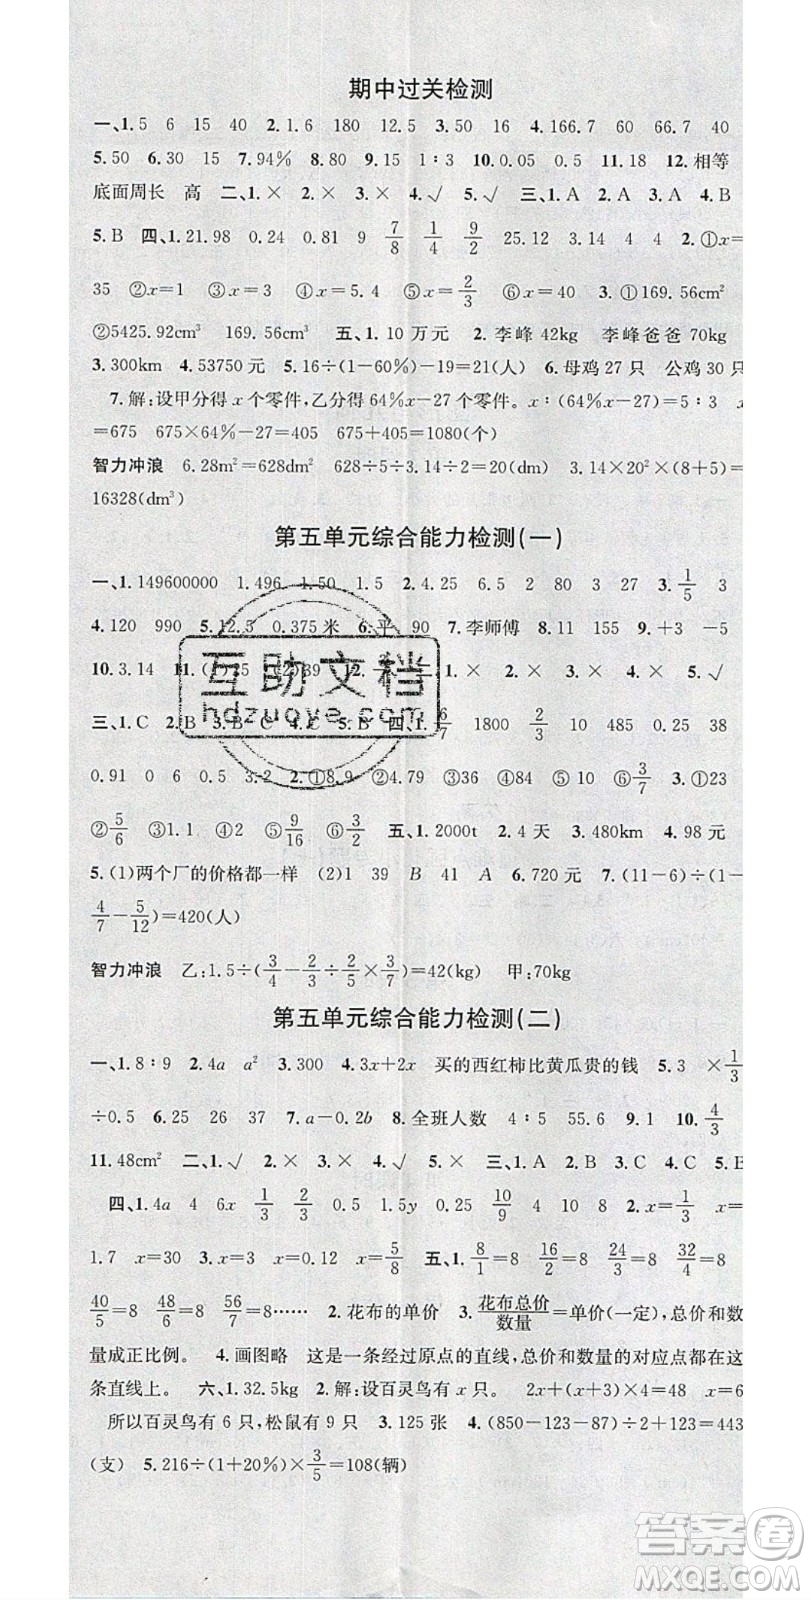 期中过关检测
一、1.5 6 15 40 2.1.6 180 12.5 3.50 16 4.166.7 60 66.7 40
5.50 6.30 15 7.94% 8.80 9.15 1∶3 10.0.05 0.5 11.18 12.相等
底面周长 高 二、1.× 2.× 3.× 4.√ 5.√ 三、1.A 2.A 3.A 4.B
5.B 四、1.21.98 0.24 0.81 9 7/8 1/4 9/2 25.12 3.14 4 4 2.①x=
35 ②x=1 ③x=8 ④x=5.4 ⑤x=2/3 ⑥x=40 3.①169.56cm²
②5425.92cm³ 169.56cm³ 五、1.10万元 2.李峰42kg 李峰爸爸70kg
3.300km 4.53750元 5.16÷(1-60%)-19=21(人) 6.母鸡27只 公鸡30只
7.解:设甲分得x个零件,乙分得64%x-27个零件。x∶(64%x-27)=5∶3 x
=675 675×64%-27=405 675+405=1080(个)
智力冲浪 6.28m²=628dm² 628÷5÷3.14÷2=20(dm) 3.14×20²×(8+5)=
16328(dm³)
第五单元综合能力检测(一)
一、1.149600000 1.496 1.50 1.5 2.4.25 6.5 2 80 3 27 3.1/5 3
4.120 990 5.12.5 0.375米 6.平 90 7.李师傅 8.11 155 9.+3 -5
10.3.14 11.(1)25 (2)39 12. 1.× 2.× 3.× 4.× 5.√
三、1.C 2.B 3.B 4.C 5.B 四、1.6/7 1800 2/3 10 485 0.25 38
0.91 0 6 0.3 2.①8.9 ②4.79 ③0 ④84 ⑤0 ⑥3/7 3.①23
②5/6 ③1.1 ④2 ⑤9/16 ⑥2 五、1.2000t 2.4天 3.480km 4.98元
5.(1)两个厂的价格都一样 (2)1 39 B 41 A 6.720元 7.(11-6)÷(1-
4/7-5/12)=420(人)
智力冲浪 乙:1.5÷(3/4-2/3÷2/5×3/7)=42(kg) 甲:70kg
第五单元综合能力检测(二)
一、1.8∶9 2.4a a² 3.300 4.3x+2x 买的西红柿比黄瓜贵的钱 5.3 ×1/3
÷0.5 6.25 26 37 7.a-0.2b 8.全班人数 4∶5 55.6 9.1 10.4/3
11.48cm² 二、1.√ 2.× 3.× 4.× 三、1.D 2.B 3.A 4.B 5.B
四、1.4a 4 6x 1/3 2/3 0.5 1.5y 0.5 10/9 4 10 8 2.x=1/3 x=
1.7 x=30 x=3 x=0.12 x=5/8 五、1.8/1=8 16/2=8 24/3=8 32/4=8
40/5=8 48/6=8 56/7=8…… 2.花布的单价 3.花布总价/数量=单价(一定),总价和数
量成正比例。 4.画图略 这是一条经过原点的直线,总价和数量的对应点都在这
条直线上。 六、1.32.5kg 2.解:设百灵鸟有x只。 2x+(x+3)×4=48 x=6
所以百灵鸟有6只,松鼠有9只 3.125张 4.(850-123-87)÷2+123=443
(支) 5.216÷(1+20%)×3/5=108(辆)
互助文档
hdzuoye.com
答案圈
MXQE.COM